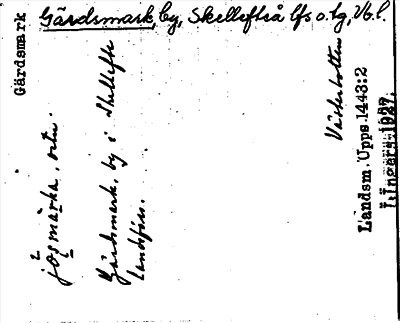 Gärdsmark, by, Skellefteå lfs o. tg, Vb. l.
Gärdsmark
Gärdsmark, by i Skellefte
landsförs.
Västerbotten
Landsm. Upps. 1443:2